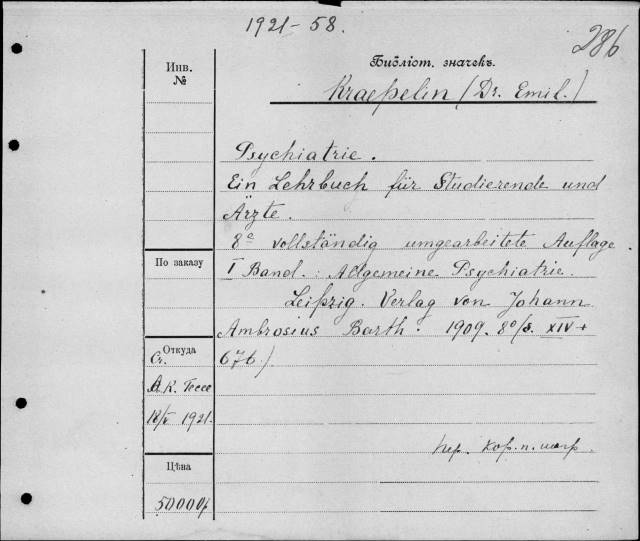 1921-58.
286
Инв.
№
Библіот. значекъ.
Kraepelin (Dr. Emil.)
Psychiatrie.
Ein Lehrbuch für Studierende und
Ärzte.
8e vollständig umgearbeitete Auflage.
По заказу
I Band.: Allgemeine Psychiatrie.
Leipzig. Verlag von Johann
Ambrosius Barth. 1909. 8º/s. XIV+
Откуда
676.)
Ст.
А.К. Гессе
18/V 1921.
пер. кор. п.
Цѣна
50000р